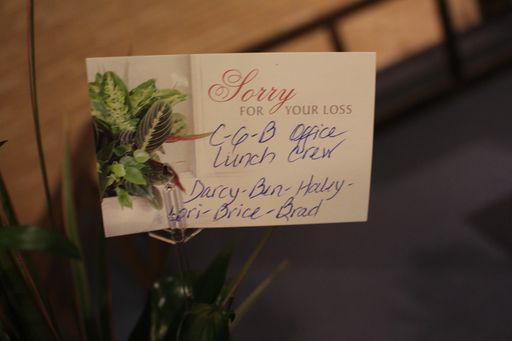 Sorry
FOR YOUR LOSS
C-G-B Office
Lunch Crew
Darcy-Ben-Haley-
Lori-Brice-Brad